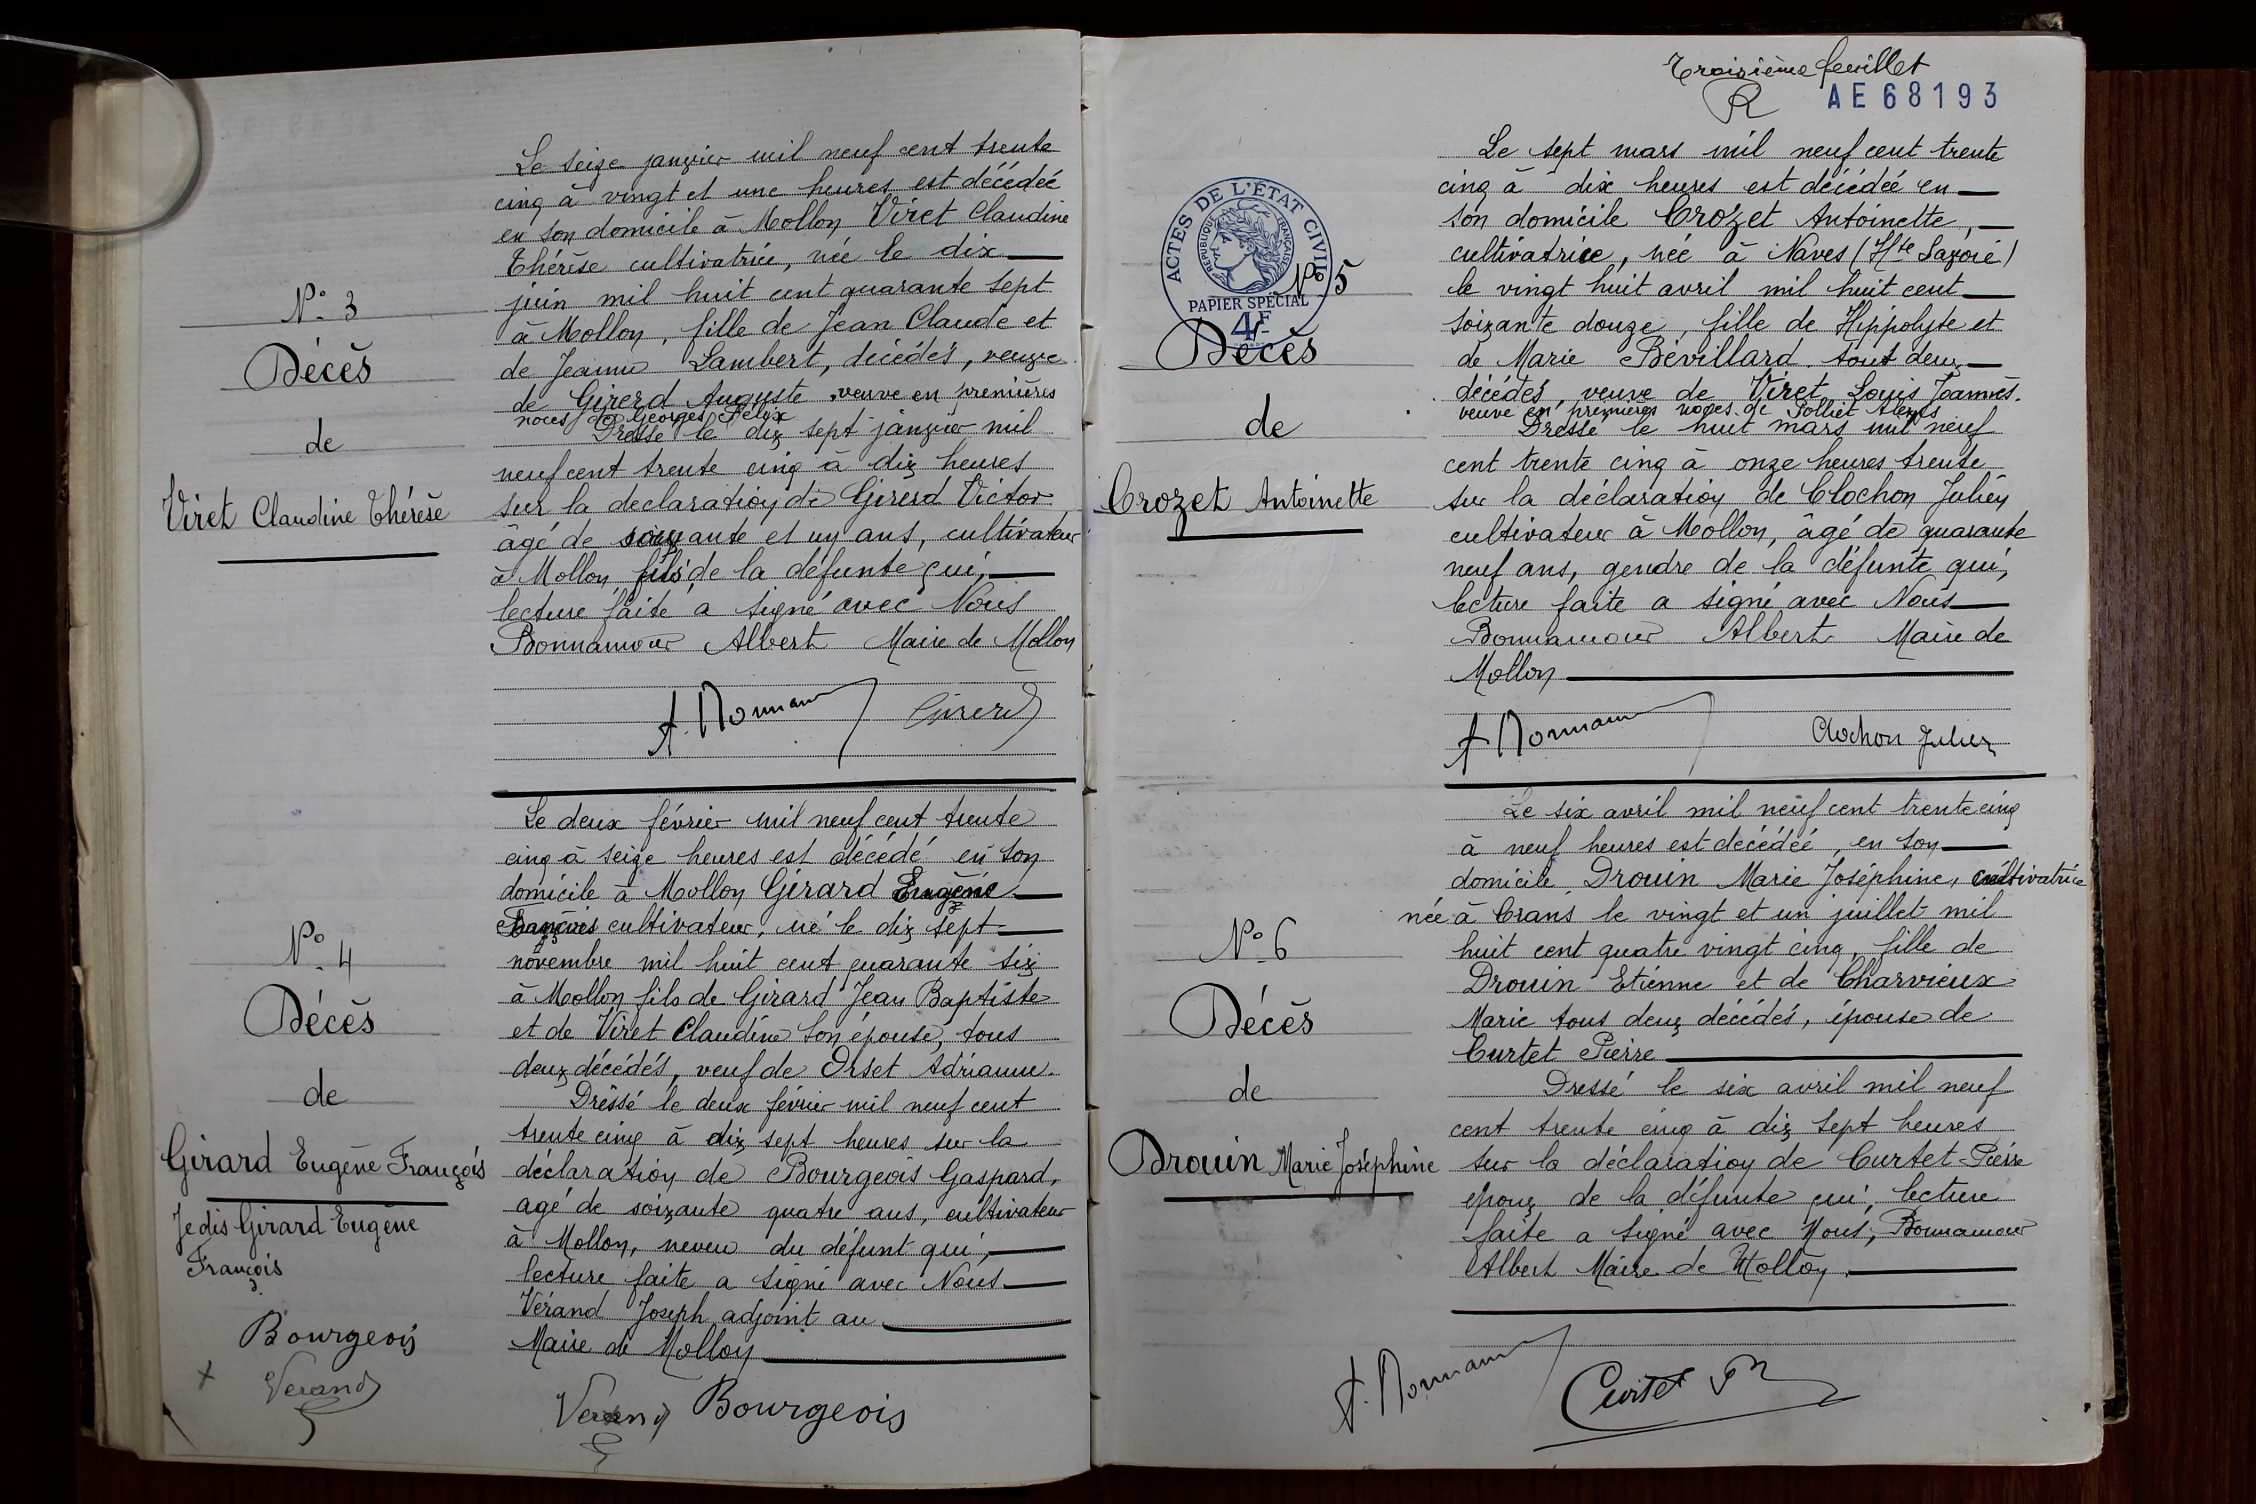 N° 3
Décès
de
Viret Claudine Thérèse
Le seize janvier mil neuf cent trente
cinq à vingt et une heures est décédée
en son domicile à Mollon Viret Claudine
Thérèse cultivatrice, née le dix
juin mil huit cent quarante sept
à Mollon, fille de Jean Claude et
de Jeanne Lambert, décédés, veuve
de Girerd Auguste, veuve en premières
noces de Georges Félix
Dressé le dix sept janvier mil
neuf cent trente cinq à dix heures
sur la déclaration de Girerd Victor
âgé de soixante et un ans, cultivateur
à Mollon fils de la défunte qui,
lecture faite a signé avec Nous
Bonnamour Albert Maire de Mollon
A. Bonnamour Girerd
N° 4
Décès
de
Girard Eugène François
Je dis Girard Eugène
François
Bourgeois
Verand
Le deux février mil neuf cent trente
cinq à seize heures est décédé en son
domicile à Mollon Girard Eugène
François cultivateur, né le dix sept
novembre mil huit cent quarante six
à Mollon fils de Girard Jean Baptiste
et de Viret Claudine son épouse, tous
deux décédés, veuf de Orset Adrianne.
Dressé le deux février mil neuf cent
trente cinq à dix sept heures sur la
déclaration de Bourgeois Gaspard,
agé de soixante quatre ans, cultivateur
à Mollon, neveu du défunt qui,
lecture faite a signé avec Nous
Vérand Joseph adjoint au
Maire de Mollon
Verand Bourgeois
Troisième feuillet
R AE68193
ACTES DE L'ÉTAT CIVIL
RÉPUBLIQUE FRANÇAISE
PAPIER SPÉCIAL
4F
N° 5
Décès
de
Crozet Antoinette
Le sept mars mil neuf cent trente
cinq à dix heures est décédée en
son domicile Crozet Antoinette,
cultivatrice, née à Naves (Hte Savoie)
le vingt huit avril mil huit cent
soixante douze, fille de Hippolyte et
de Marie Bévillard tout deux
décédés, veuve de Viret Louis Joannès.
veuve en premières noces de Polliet Alexis
Dressé le huit mars mil neuf
cent trente cinq à onze heures trente
sur la déclaration de Clochon Julien
cultivateur à Mollon, âgé de quarante
neuf ans, gendre de la défunte qui,
lecture faite a signé avec Nous
Bonnamour Albert Maire de
Mollon
A Bonnamour Clochon Julien
N° 6
Décès
de
Drouin Marie Joséphine
Le six avril mil neuf cent trente cinq
à neuf heures est décédée, en son
domicile Drouin Marie Joséphine, cultivatrice
née à Crans le vingt et un juillet mil
huit cent quatre vingt cinq, fille de
Drouin Etienne et de Charvieux
Marie tous deux décédés, épouse de
Curtet Pierre
Dressé le six avril mil neuf
cent trente cinq à dix sept heures
sur la déclaration de Curtet Pierre
epoux de la défunte qui, lecture
faite a signé avec Nous, Bonnamour
Albert Maire de Mollon.
A. Bonnamour Curtet